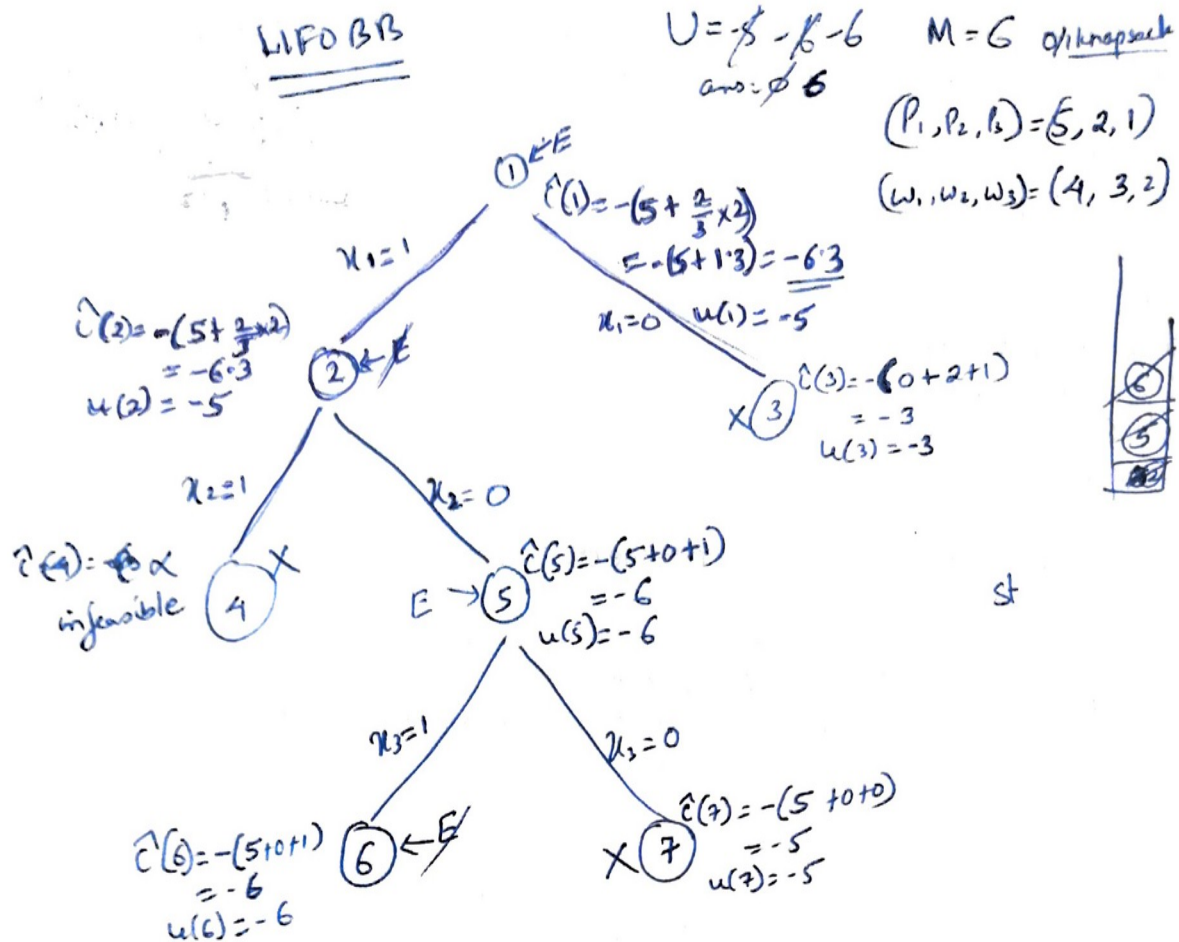 LIFOBB
U = -5 -6 -6 M = 6 0/1 knapsack
ans: 0 6
(P₁, P₂, P₃) = (5, 2, 1)
(w₁, w₂, w₃) = (4, 3, 2)
1 ← E
ĉ(1) = -(5 + 2/3 × 2)
= -(5 + 1.3) = -6.3
u(1) = -5
x₁ = 1
x₁ = 0
ĉ(2) = -(5 + 2/3 × 2)
= -6.3
u(2) = -5
2 ← E
X 3
ĉ(3) = -(0 + 2 + 1)
= -3
u(3) = -3
6
5
2
x₂ = 1
x₂ = 0
ĉ(4) = α
infeasible
4 X
E → 5
ĉ(5) = -(5 + 0 + 1)
= -6
u(5) = -6
st
x₃ = 1
x₃ = 0
ĉ(6) = -(5 + 0 + 1)
= -6
u(6) = -6
6 ← E
X 7
ĉ(7) = -(5 + 0 + 0)
= -5
u(7) = -5